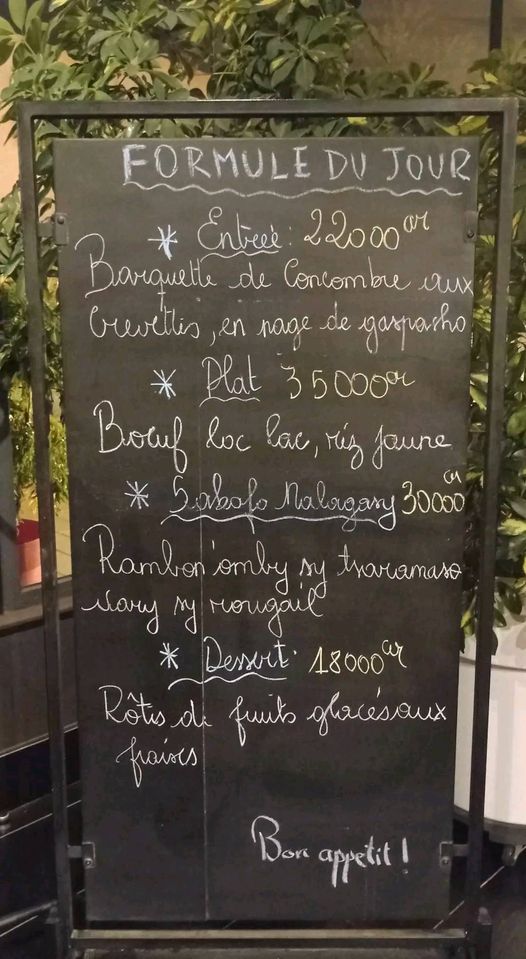 FORMULE DU JOUR
* Entreé : 22000 ar
Barquette de Concombre aux
Crevettes, en nage de gaspacho
* Plat 35000 ar
Boeuf loc lac, riz jaune
* Sakafo Malagasy 30000 ar
Rambon'omby sy tsaramaso
vary sy rougail
* Dessert. 18000 ar
Rôtis de fruits glacés aux
fraises
Bon appetit !